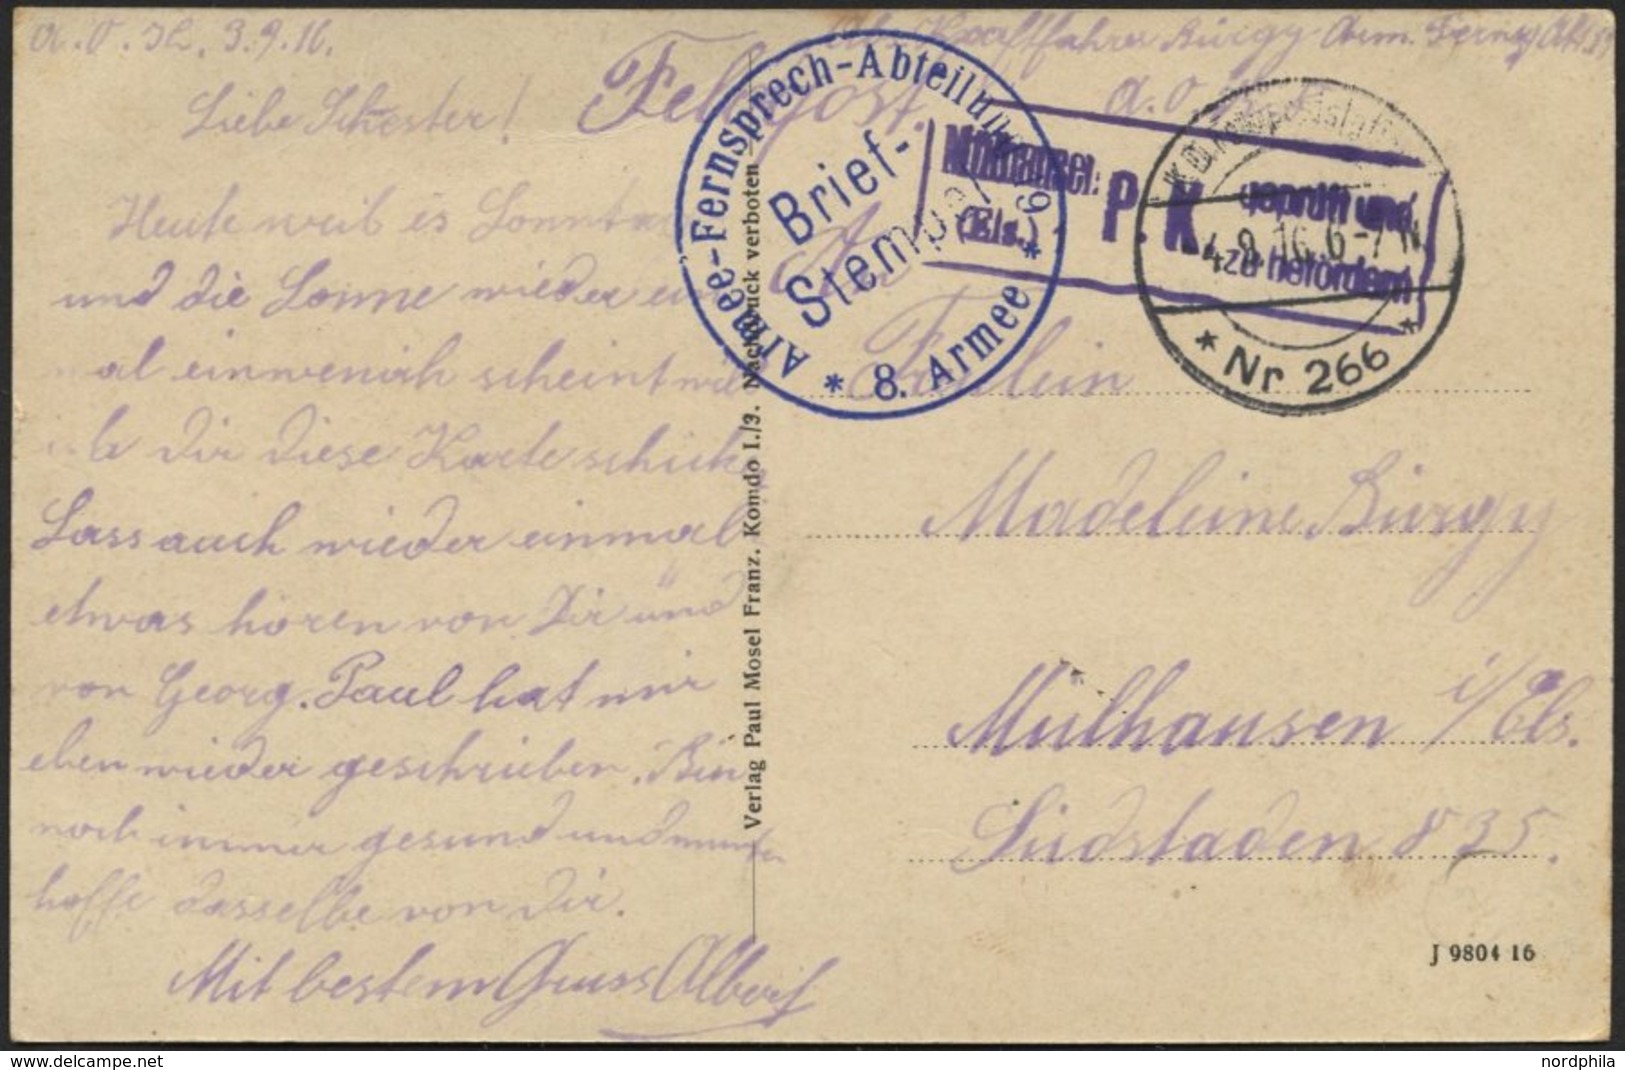 a. O. 3.9.16.
Abs. Kraftfahrer Bürgy Arm. Fernsp. Abt.
a. O.
Feldpost.
Liebe Schester!
Heute weil es Sonntag
und die Sonne wieder ein
mal einwenich scheint will
ich Dir diese Karte schicken
Lass auch wieder einmal
etwas hören von Dir und
von Georg. Paul hat mir
eben wieder geschrieben. Bin
noch immer gesund und munter
hoffe dasselbe von Dir.
Mit bestem Gruss Albert
Armee-Fernsprech-Abteilung
Brief-
Stempel
* 8. Armee *
Mülhausen
(Els.)
P. K.
geprüft und
zu befördern
K.D. Feldpoststation
4.9.16. 6-7 N
* Nr 266 *
Verlag Paul Mosel Franz. Komdo I./3. Nachdruck verboten
An
Fräulein
Madeleine Bürgy
Mülhausen i/Els.
Südstaden 835.
J 9804 16
www.delcampe.net
nordphila